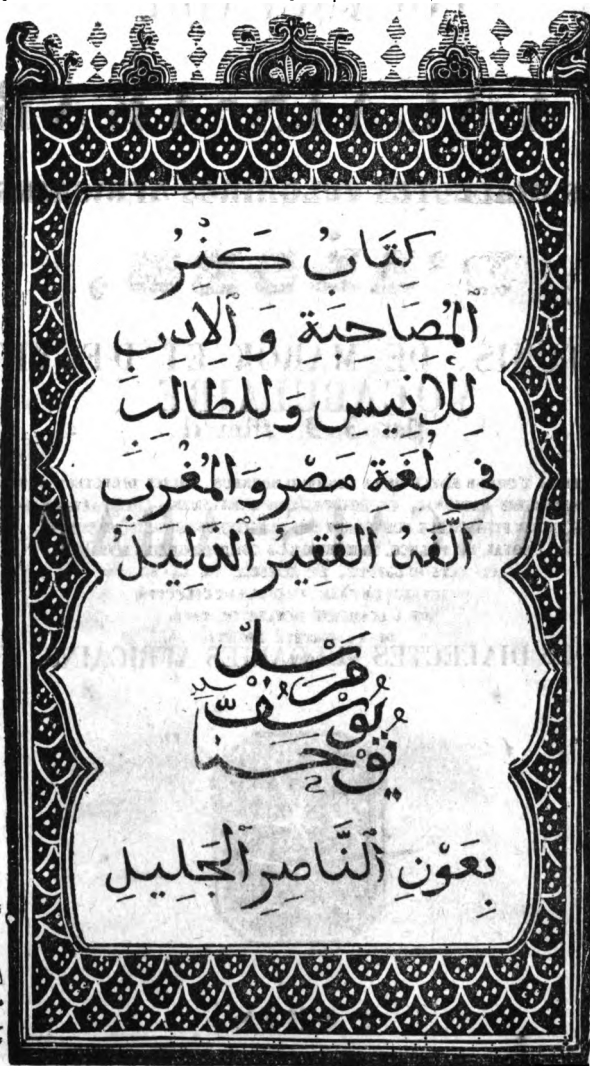 كِتَابُ كَنْزُ
ٱلْمُصَاحِبَةِ وَ ٱلْاِدِبِ
لِلْاِنِيسِ وَلِلطَالِبِ
فى لُغَةِ مَصْرِ وَالمُغْرِبِ
أَلَّفَهُ ٱلفَقِيرُ ٱلذَلِيلُ
مَرسَل
يُوسُفّ
يُوحَنا
بِعَوْنِ ٱلنَّاصِرِ ٱلجَلِيلِ